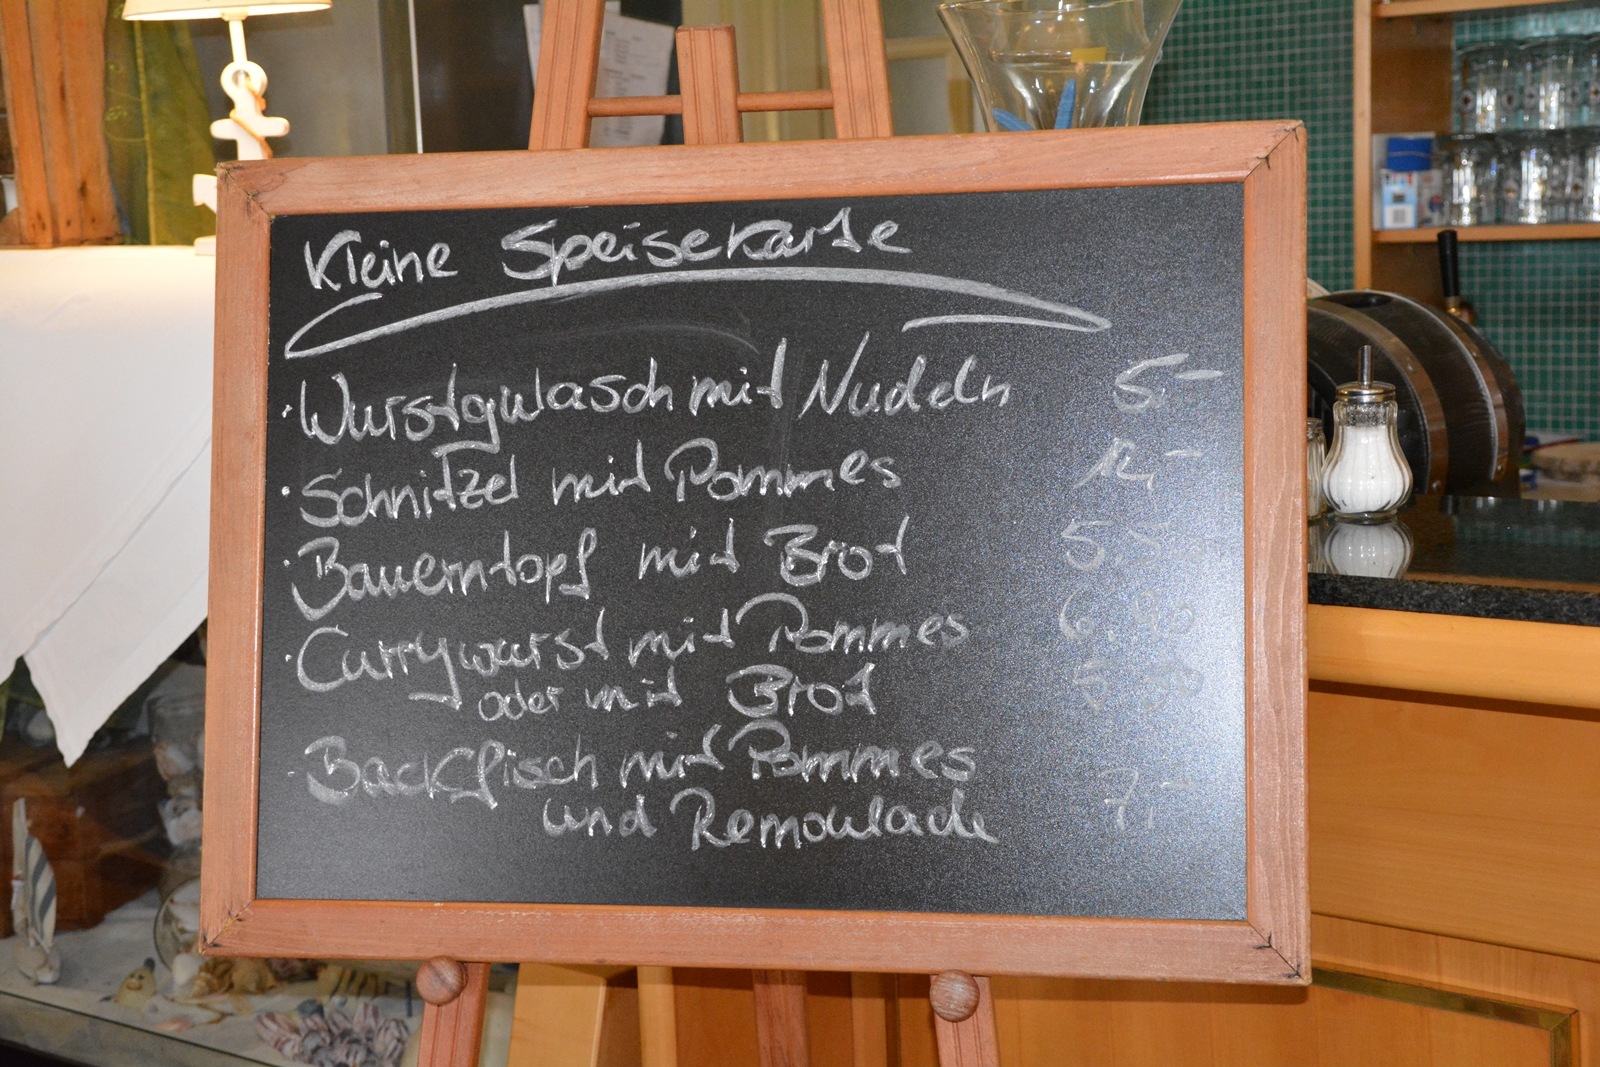 Kleine Speisekarte
· Wurstgulasch mit Nudeln 5.-
· Schnitzel mit Pommes 12,-
· Bauerntopf mit Brot 5.50
· Currywurst mit Pommes 6.90
oder mit Brot
· Backfisch mit Pommes 7,-
und Remoulade